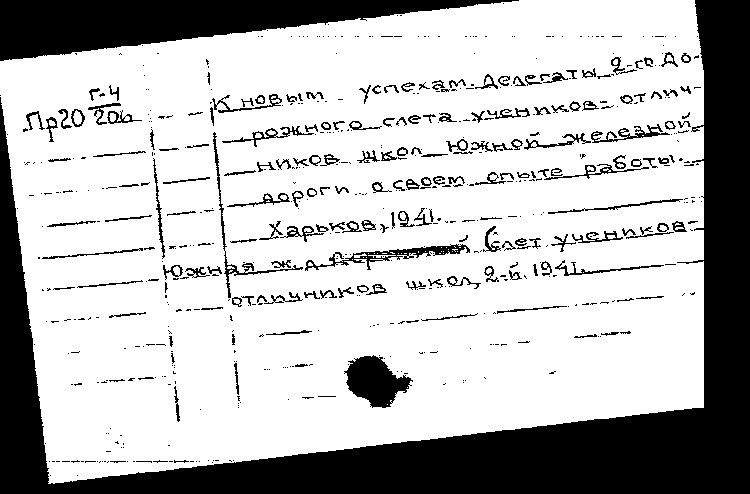 Г-4
Пр20 20а
К новым успехам. Делегаты 2-го До-
рожного слета учеников-отлич-
ников школ Южной железной
дороги о своем опыте работы.
Харьков, 1941.
Южная ж.д. Слет учеников-
отличников школ, 2-й. 1941.